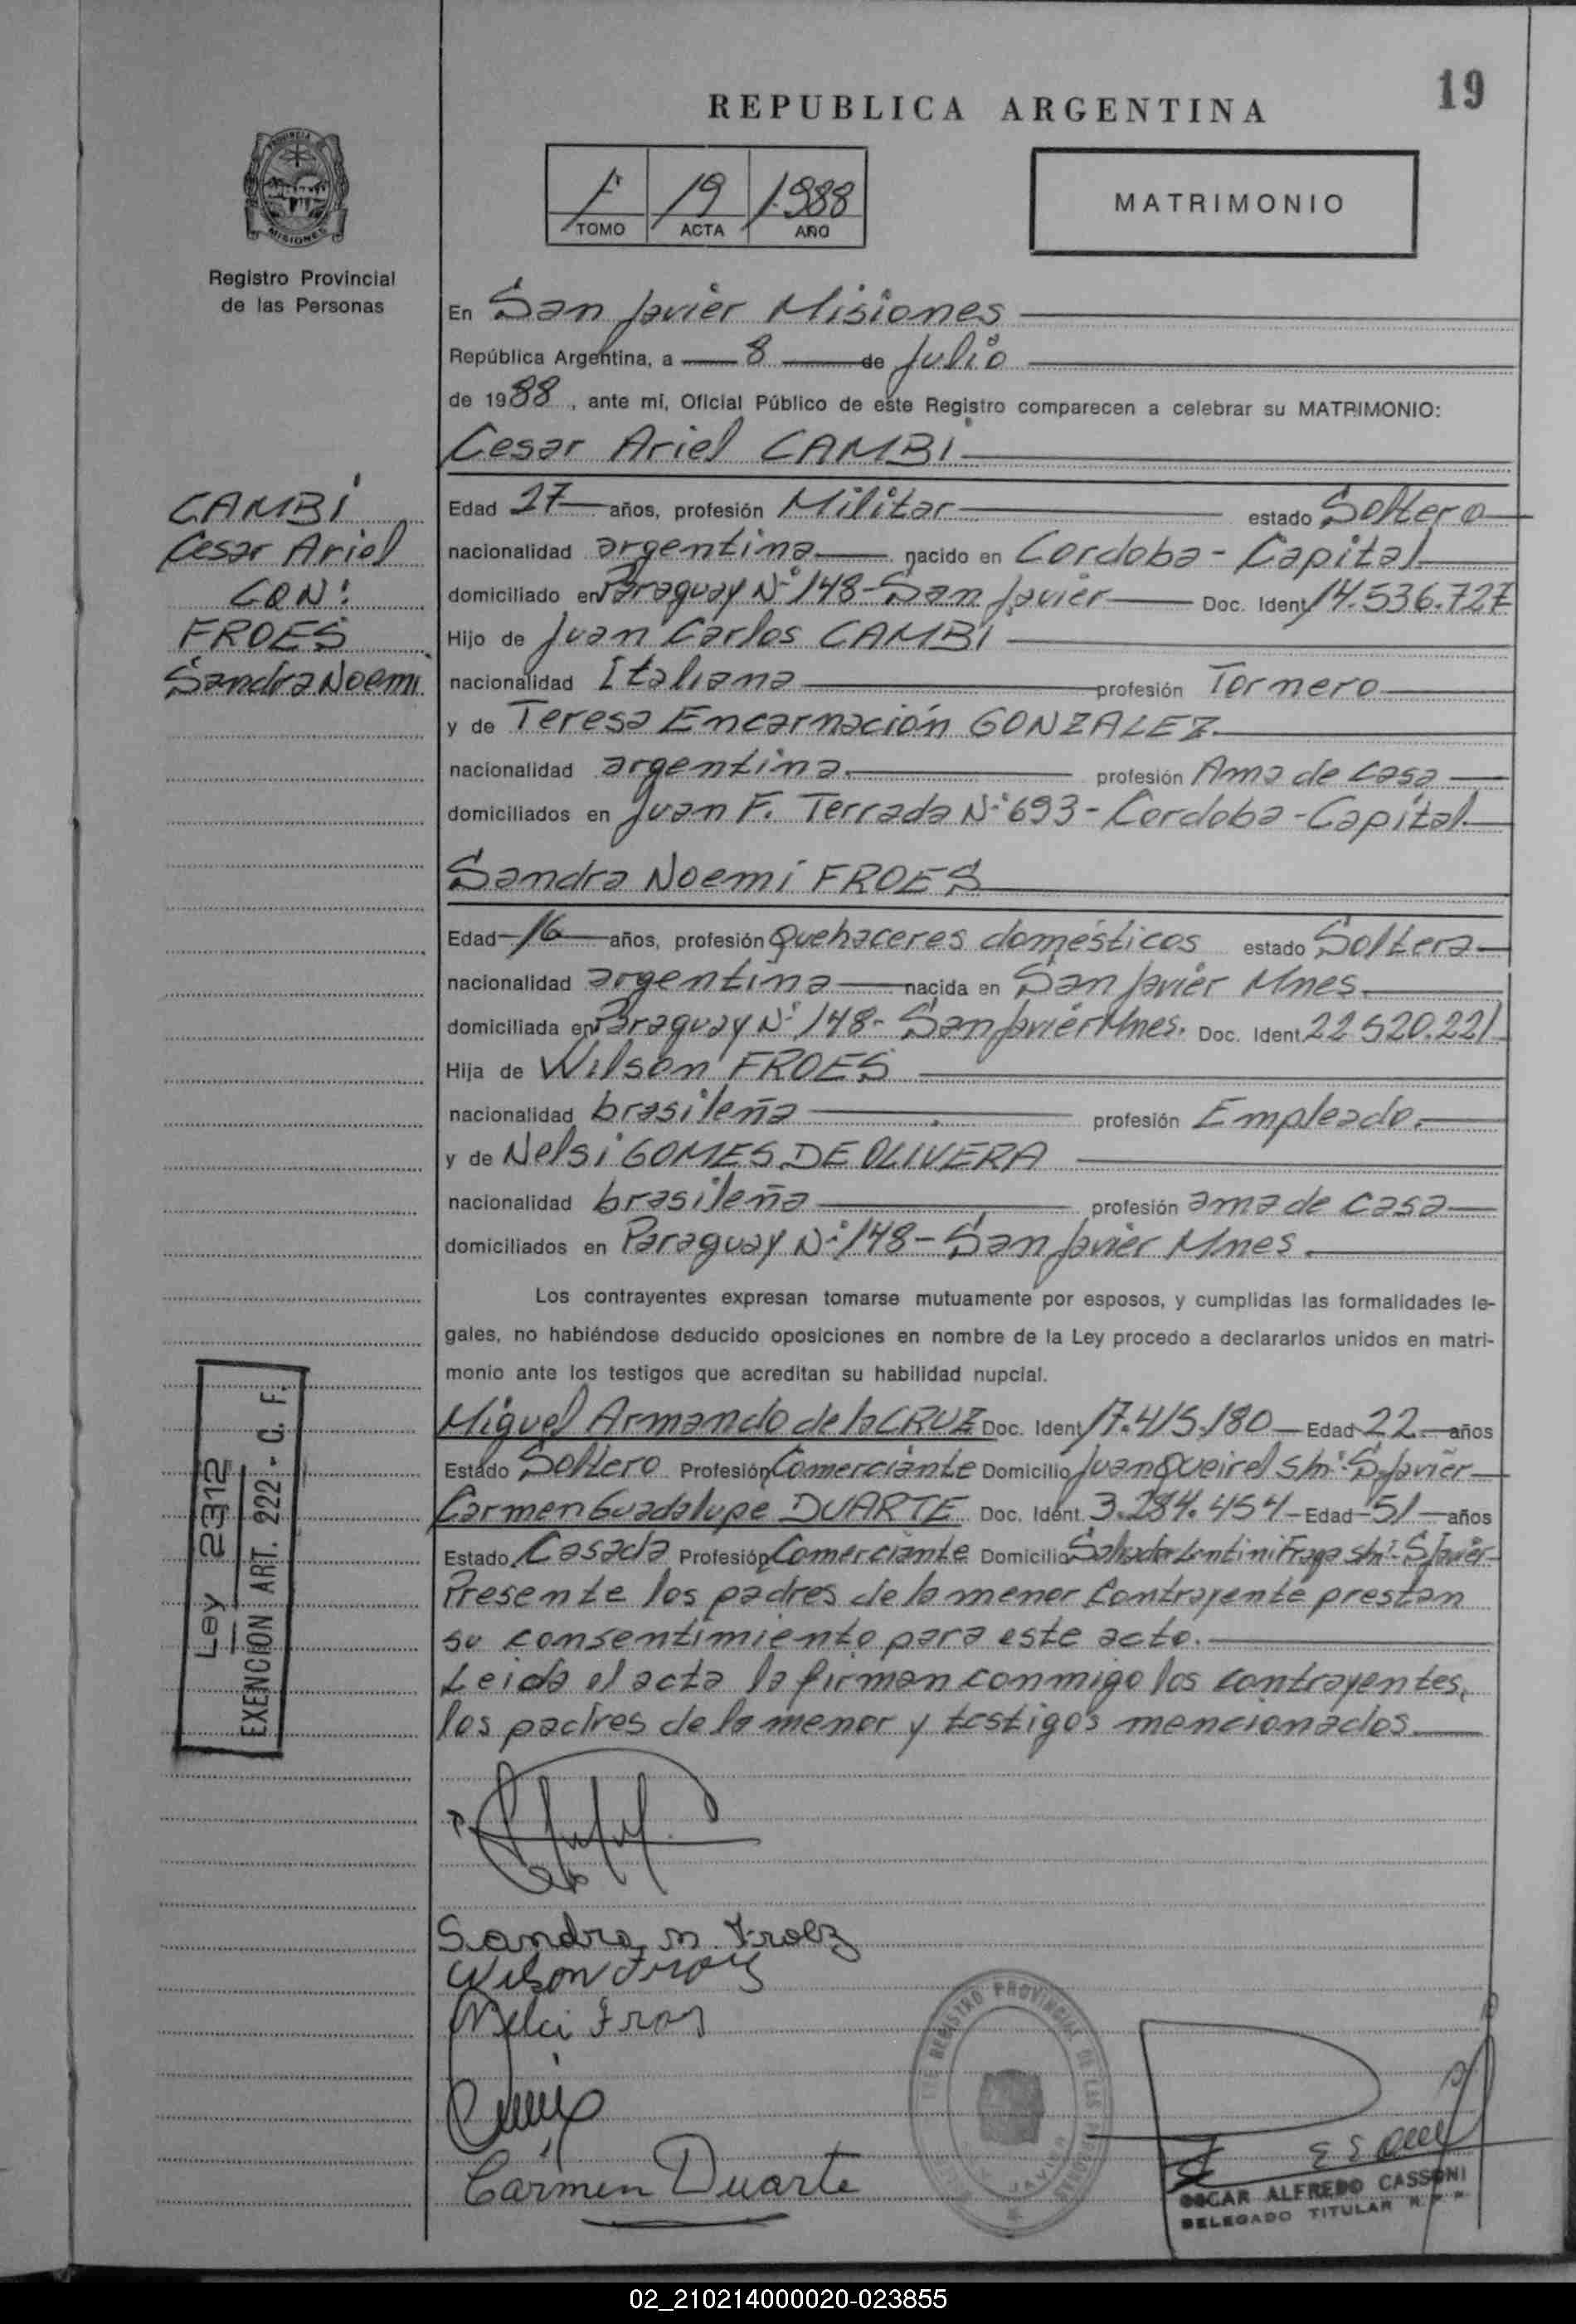 19
REPUBLICA ARGENTINA
1º 19 1.988
TOMO ACTA AÑO
MATRIMONIO
PROVINCIA
MISIONES
Registro Provincial
de las Personas
En San Javier Misiones
República Argentina, a 8 de Julio
de 1988, ante mí, Oficial Público de este Registro comparecen a celebrar su MATRIMONIO:
Cesar Ariel CAMBI
CAMBI
Cesar Ariel
CON:
FROES
Sandra Noemi
Edad 27 años, profesión Militar estado Soltero
nacionalidad argentina nacido en Cordoba - Capital
domiciliado en Paraguay Nº 148 - San Javier Doc. Ident 14.536.727
Hijo de Juan Carlos CAMBI
nacionalidad Italiana profesión Tornero
y de Teresa Encarnación GONZALEZ
nacionalidad argentina profesión Ama de casa
domiciliados en Juan F. Terrada Nº 693 - Cordoba - Capital
Sandra Noemi FROES
Edad 16 años, profesión Quehaceres domésticos estado Soltera
nacionalidad argentina nacida en San Javier Mnes.
domiciliada en Paraguay Nº 148 - San Javier Mnes. Doc. Ident 22.520.221
Hija de Wilson FROES
nacionalidad brasileña profesión Empleado.
y de Nelsi GOMES DE OLIVERA
nacionalidad brasileña profesión ama de casa
domiciliados en Paraguay Nº 148 - San Javier Mnes.
Los contrayentes expresan tomarse mutuamente por esposos, y cumplidas las formalidades le-
gales, no habiéndose deducido oposiciones en nombre de la Ley procedo a declararlos unidos en matri-
monio ante los testigos que acreditan su habilidad nupcial.
Miguel Armando de la CRUZ Doc. Ident 17.415.180 Edad 22 años
Estado Soltero Profesión Comerciante Domicilio Juan Queirel s/nº S. Javier
Carmen Guadalupe DUARTE Doc. Ident. 3.284.454 Edad 51 años
Estado Casada Profesión Comerciante Domicilio Salvador Lentini Fraga s/nº S. Javier
Presente los padres de la menor contrayente prestan
su consentimiento para este acto.
Leida el acta la firman conmigo los contrayentes,
los padres de la menor y testigos mencionados
Ley 2312
EXENCION ART. 222 - C. F.
Sandra N. Froez
Wilson Froes
Nelci Froes
Carmen Duarte
REGISTRO PROVINCIAL DE LAS PERSONAS
JAVIER
OSCAR ALFREDO CASSONI
DELEGADO TITULAR R. P. P.
02_210214000020-023855